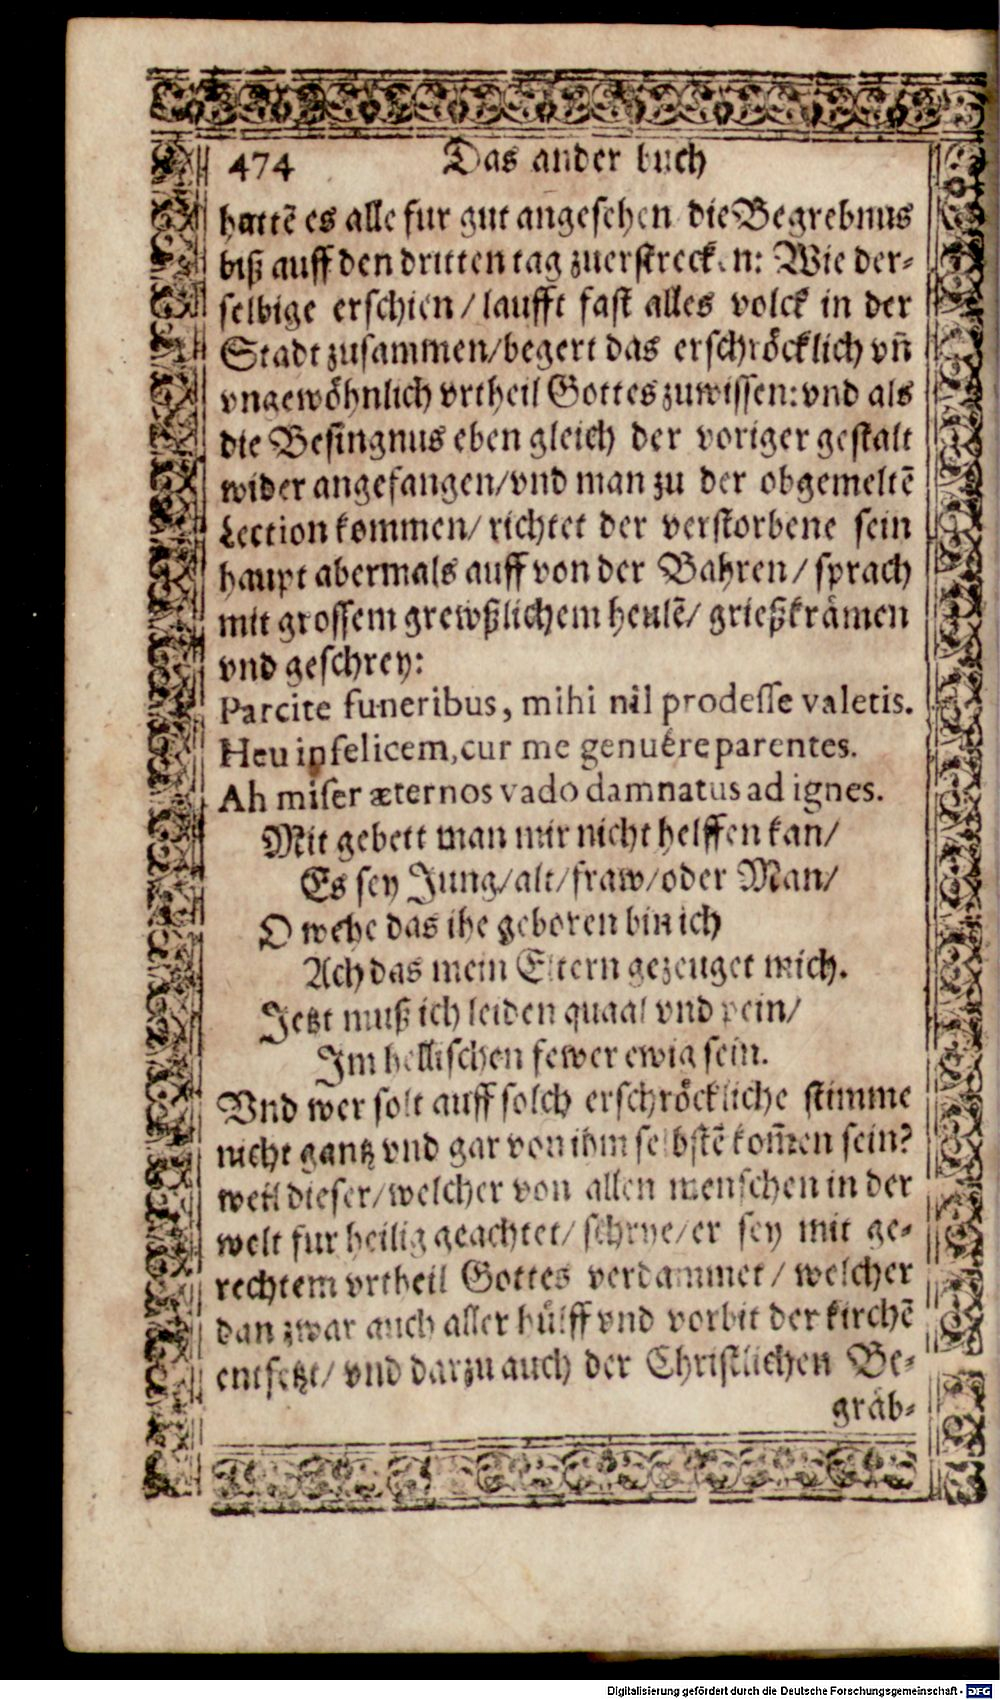 474 Das ander buch
hattē es alle fur gut angesehen die Begrebnus
biß auff den dritten tag zuerstrecken: Wie der-
selbige erschien / laufft fast alles volck in der
Stadt zusammen/begert das erschröcklich vn̄
vngewöhnlich vrtheil Gottes zuwissen: vnd als
die Besingnus eben gleich der voriger gestalt
wider angefangen/vnd man zu der obgemeltē
Lection kommen/ richtet der verstorbene sein
haupt abermals auff von der Bahren / sprach
mit grossem grewßlichem heulē/ grießkrämen
vnd geschrey:
Parcite funeribus, mihi nil prodesse valetis.
Heu infelicem, cur me genuêre parentes.
Ah miser æternos vado damnatus ad ignes.
Mit gebett man mir nicht helffen kan/
Es sey Jung/alt/fraw/oder Man/
O wehe das ihe geboren bin ich
Ach das mein Eltern gezeuget mich.
Jetzt muß ich leiden quaal vnd pein/
Im hellischen fewer ewig sein.
Vnd wer solt auff solch erschröckliche stimme
nicht gantz vnd gar von ihm selbstē kom̄en sein?
weil dieser/welcher von allen menschen in der
welt fur heilig geachtet/ schrye/er sey mit ge-
rechtem vrtheil Gottes verdammet / welcher
dan zwar auch aller hülff vnd vorbit der kirchē
entsetzt/ vnd darzu auch der Christlichen Be-
gräb-
Digitalisierung gefördert durch die Deutsche Forschungsgemeinschaft - DFG